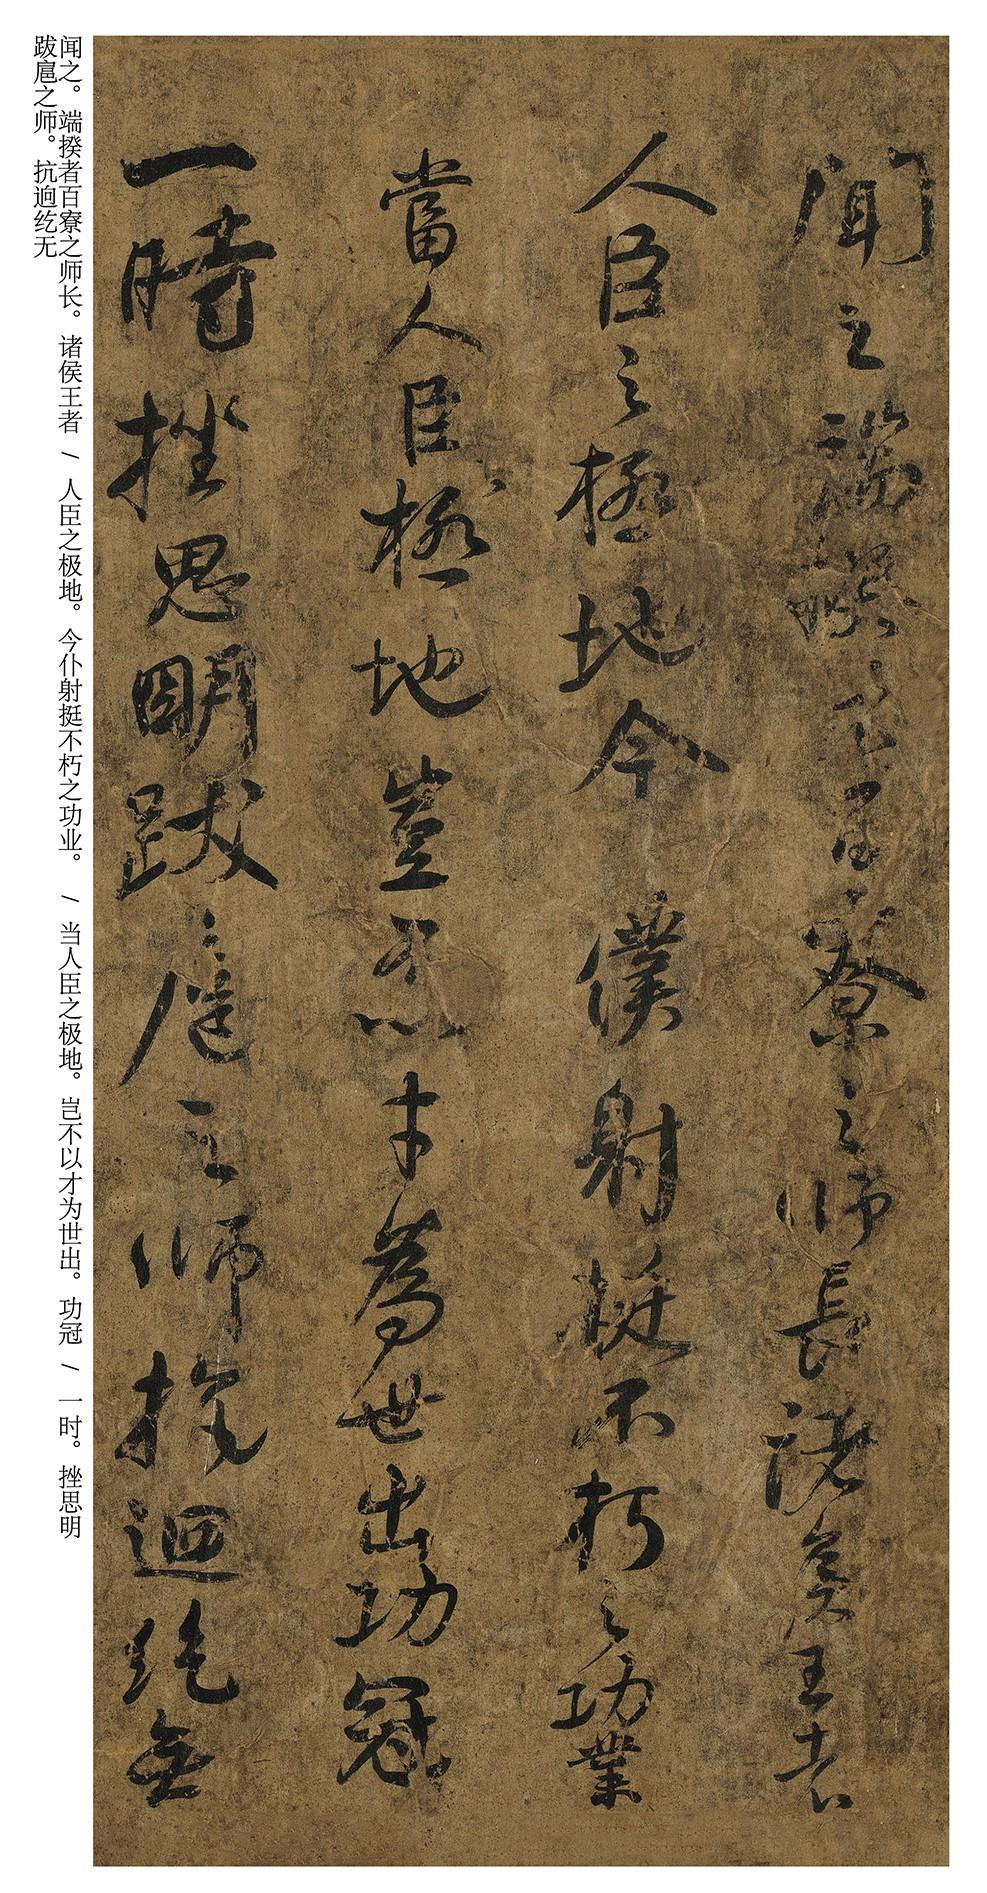 聞之端揆者百寮之師長諸侯王者
人臣之極地今僕射挺不朽之功業
當人臣極地豈不以才為世出功冠
一時挫思明跋扈之師抗迴紇無
闻之。端揆者百寮之师长。诸侯王者 / 人臣之极地。今仆射挺不朽之功业。 / 当人臣之极地。岂不以才为世出。功冠 / 一时。挫思明
跋扈之师。抗逈纥无